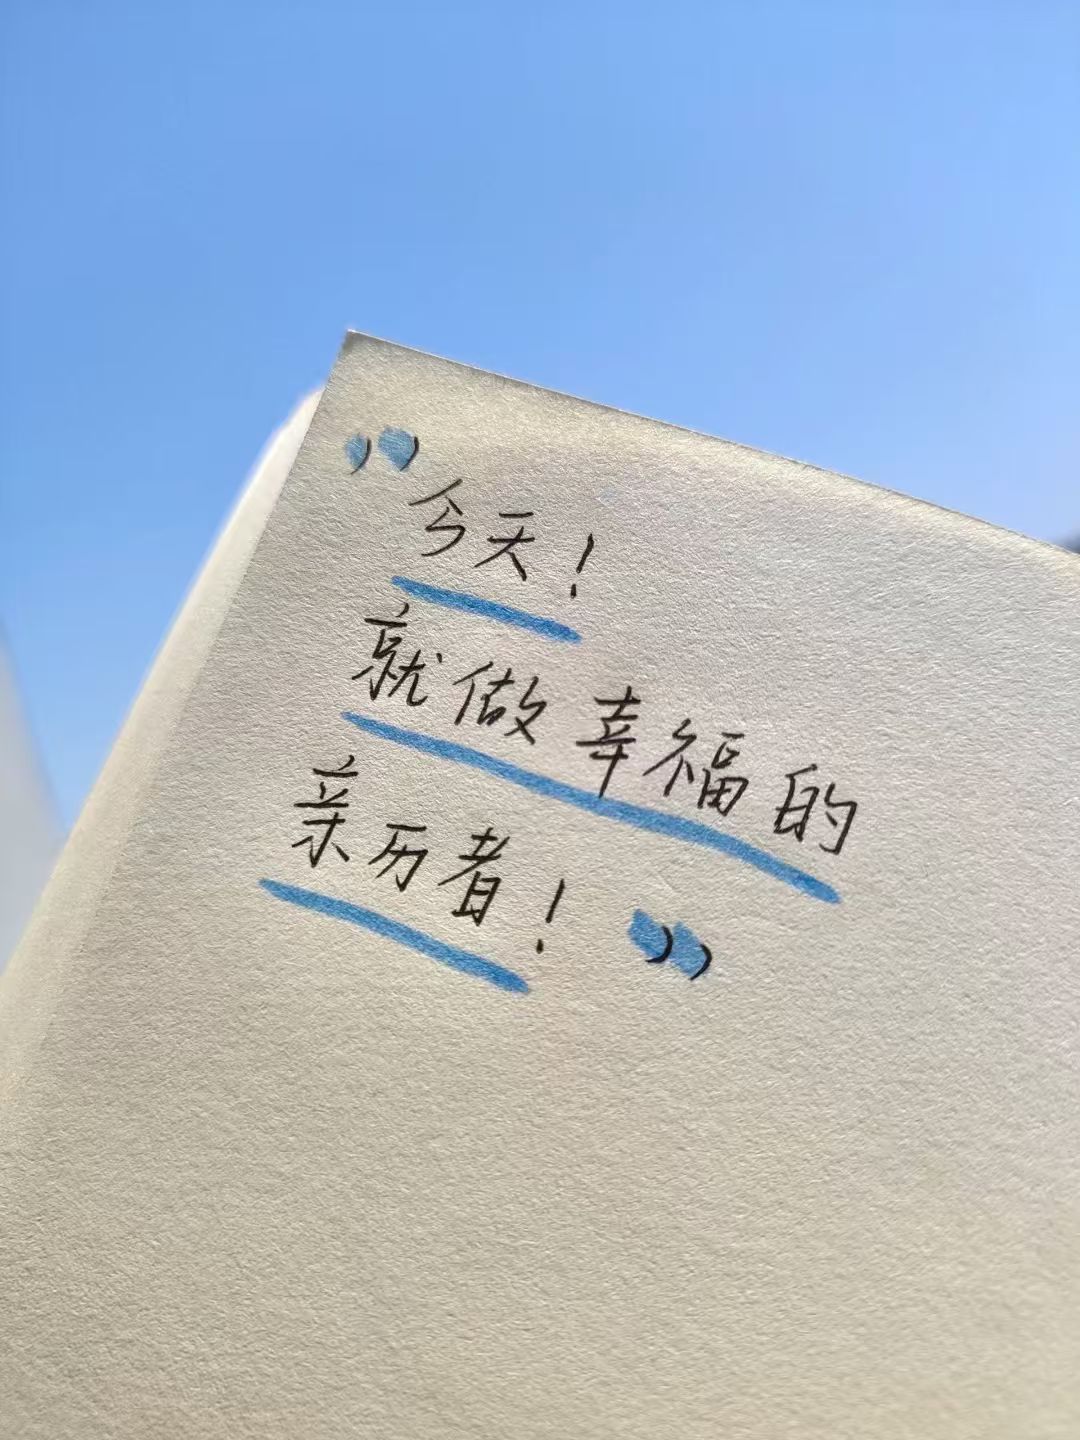 ”今天！
就做幸福的
亲历者！”